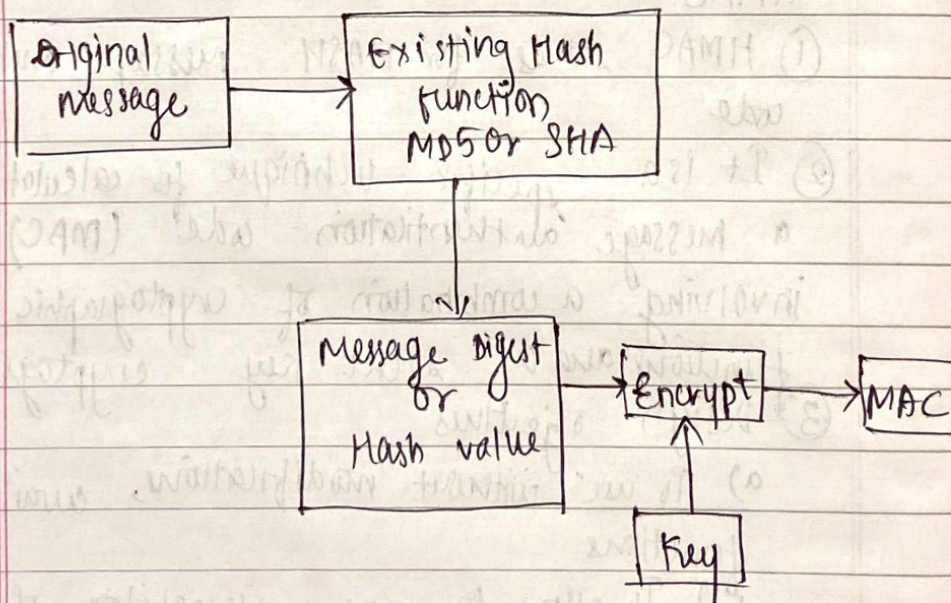 Original
Message
Existing Hash
Function
MD5 or SHA
Message Digest
or
Hash value
Encrypt
MAC
Key